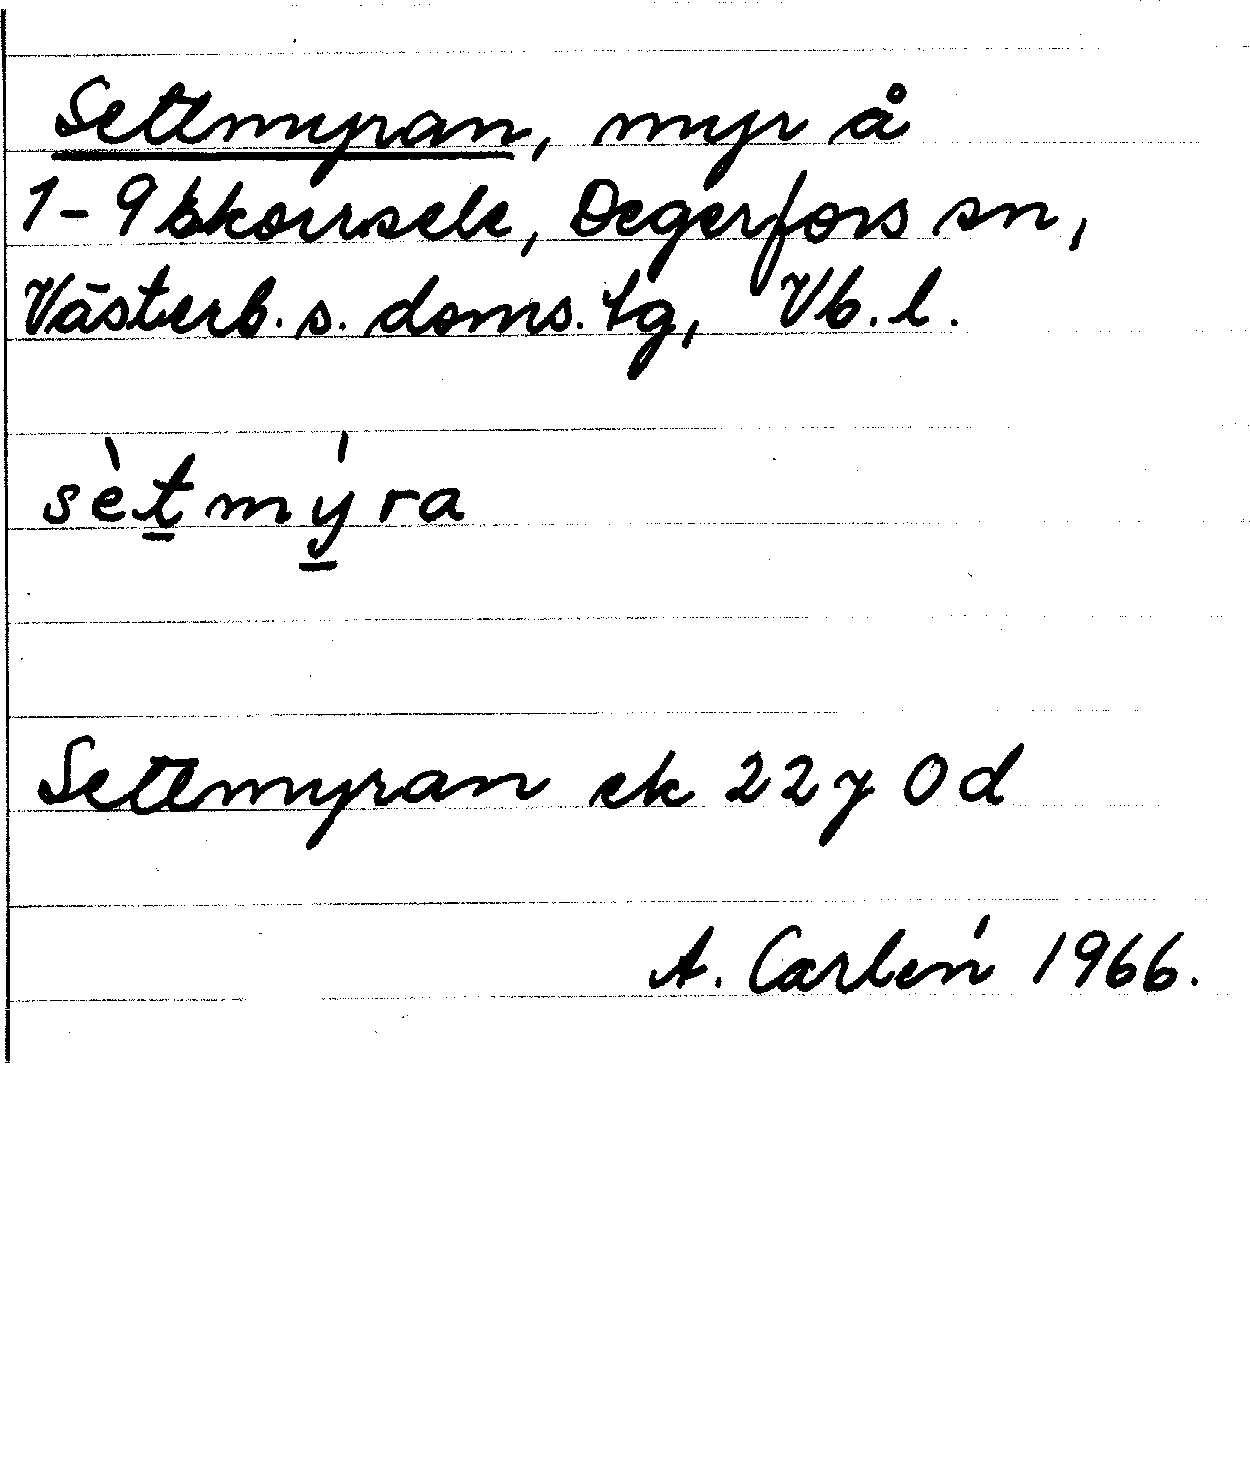 Settmyran, myr å
1-9 Skoursele, Degerfors sn,
Västerb. s. doms. tg, Vb. l.
sètmýra
Settmyran ek 22 y 0 d
A. Carlén 1966.